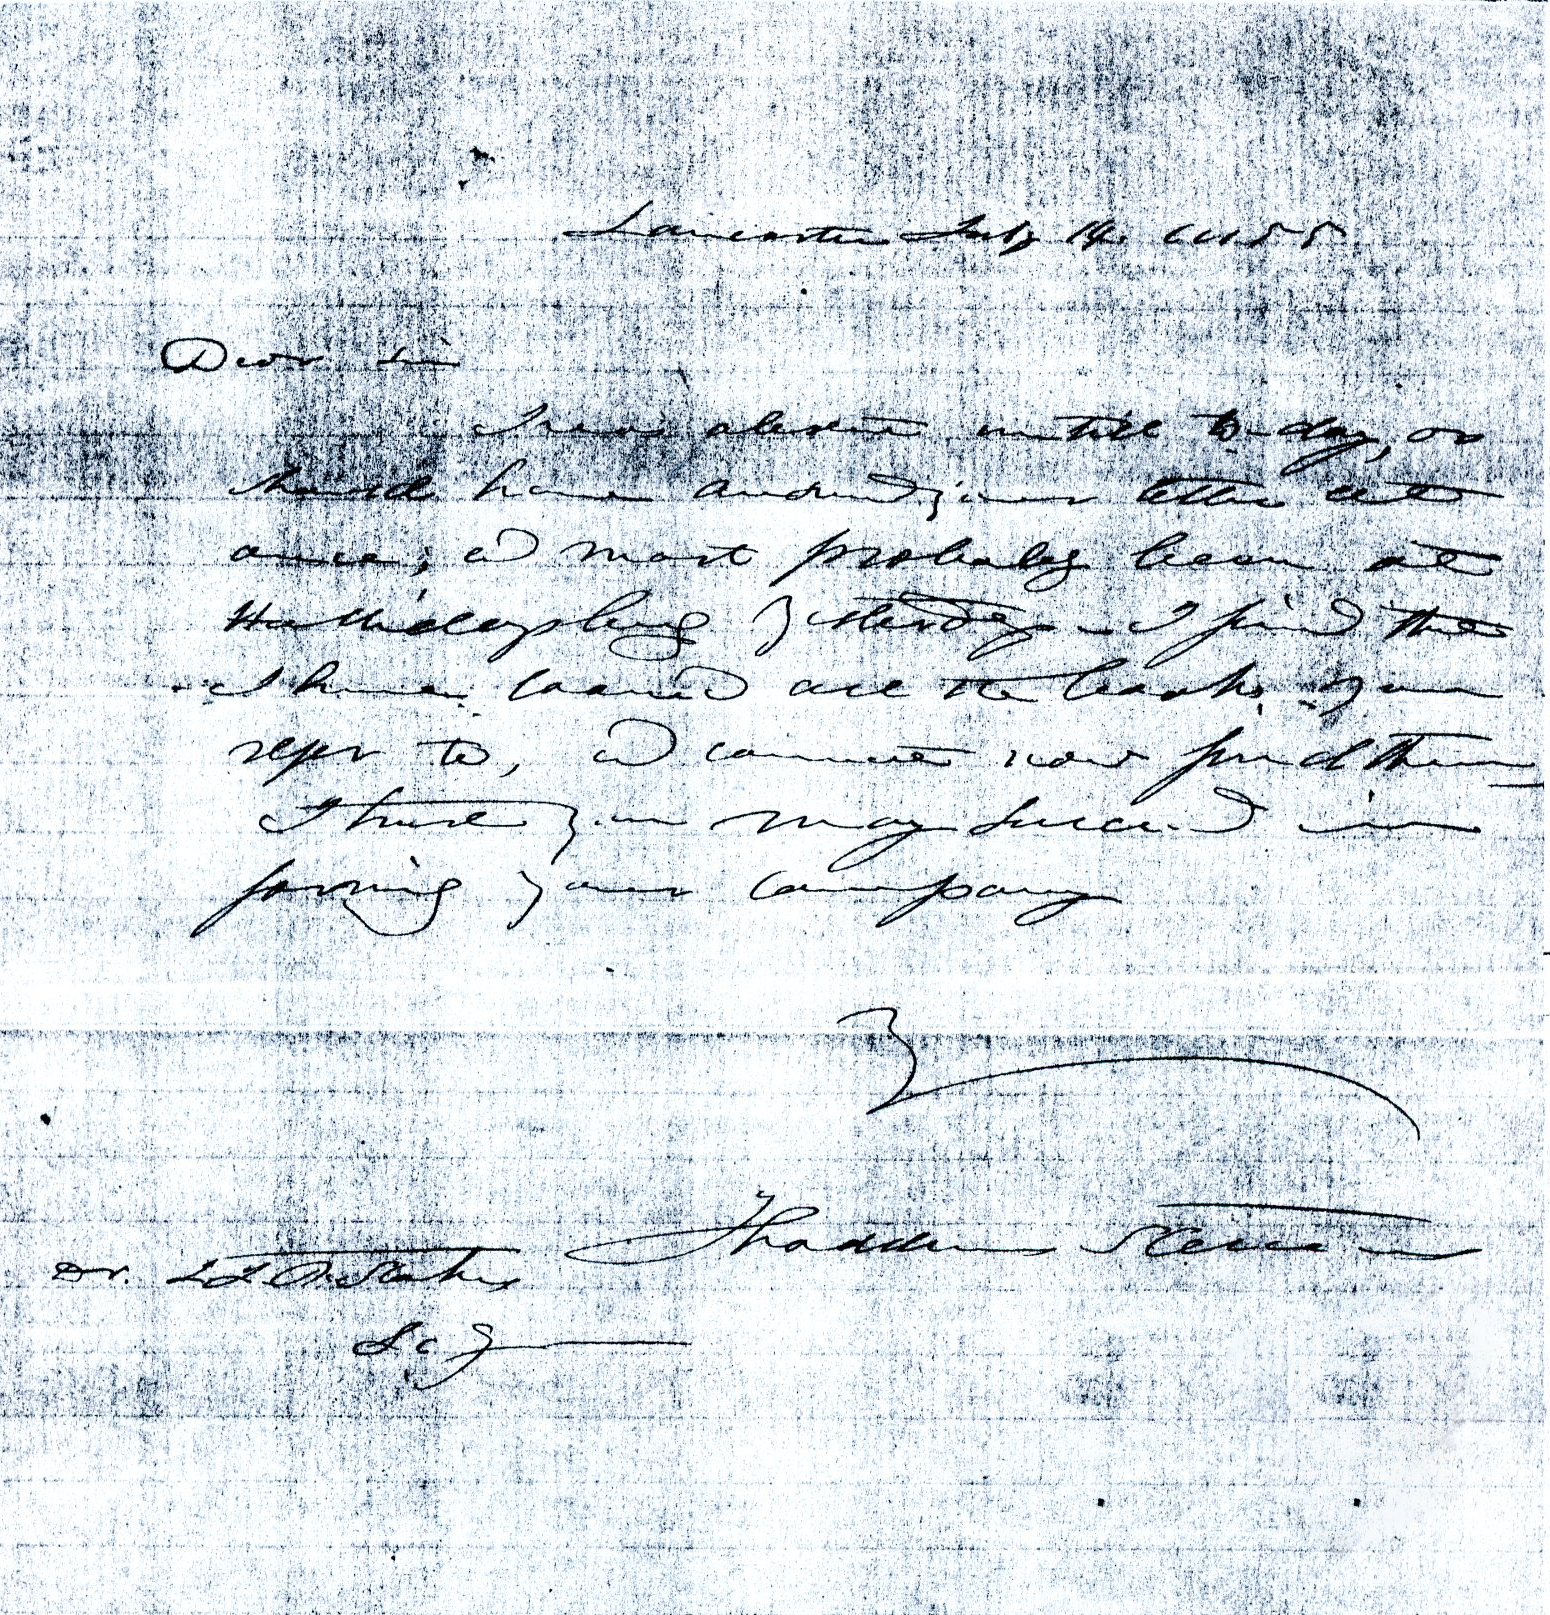 Lancaster July 14. 1855
Dear Sir
I was absent untill to-day, or
should have answered your letter at
once, & most probably been at
Hollidaysburg yesterday - I find that
I have loaned all the books you
refer to, & cannot now find them
I trust you may succeed in
forming your company
Thaddeus Stevens
Dr.